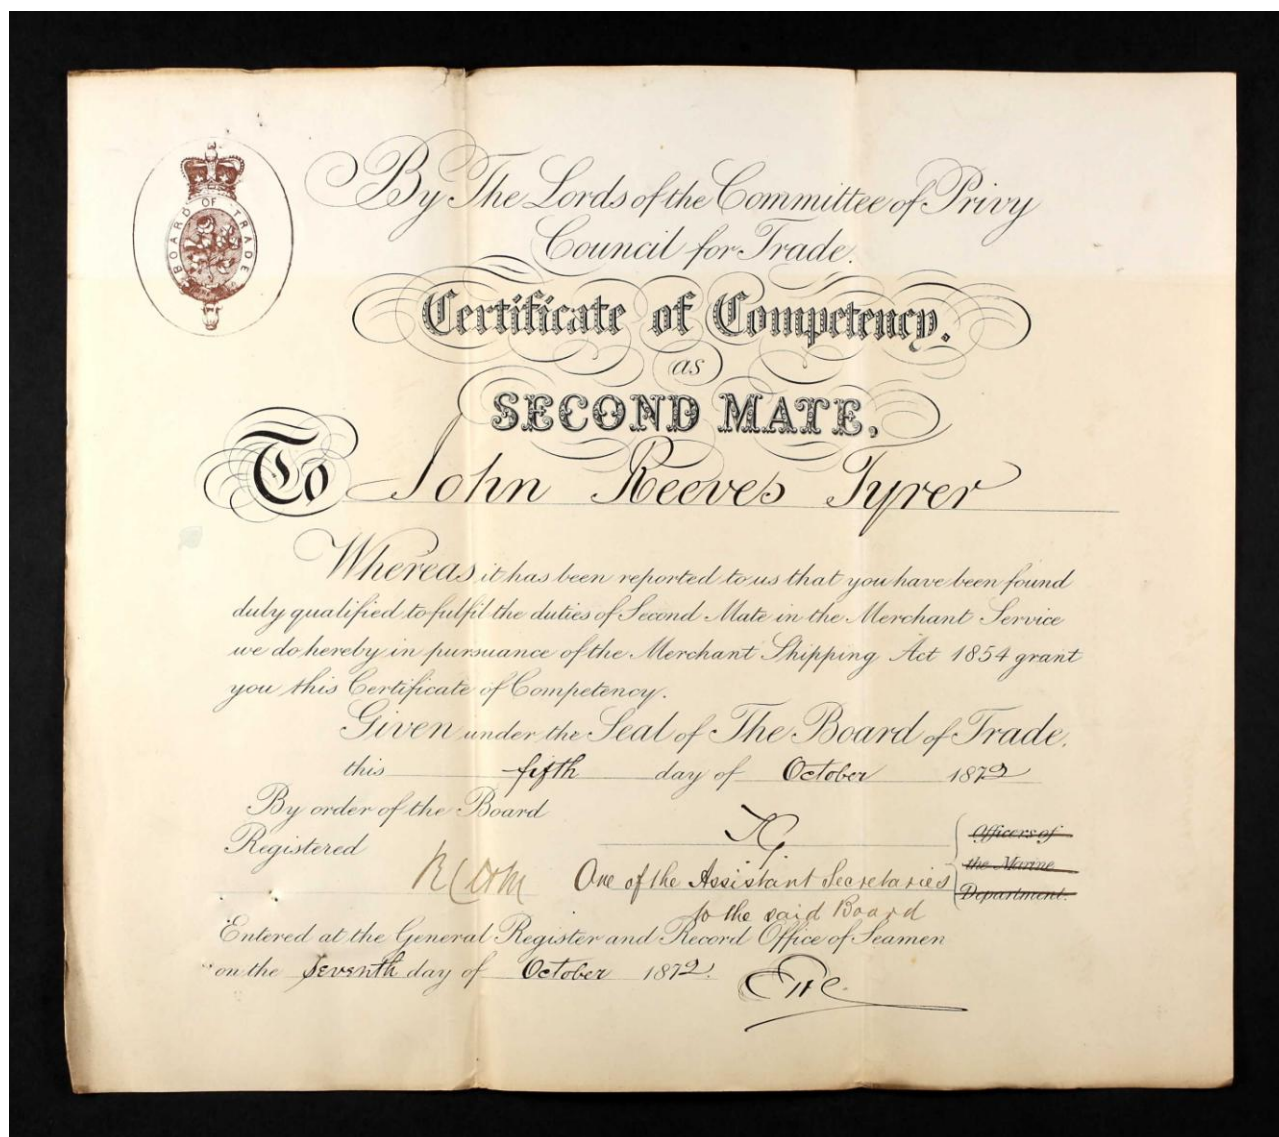 BOARD OF TRADE
By The Lords of the Committee of Privy
Council for Trade.
Certificate of Competency.
as
SECOND MATE,
To John Reeves Tyrer
Whereas it has been reported to us that you have been found
duly qualified to fulfil the duties of Second Mate in the Merchant Service
we do hereby in pursuance of the Merchant Shipping Act 1854 grant
you this Certificate of Competency.
Given under the Seal of The Board of Trade.
this fifth day of October 1872
By order of the Board
Officers of
Registered
the Marine
One of the Assistant Secretaries
Department.
to the said Board
Entered at the General Register and Record Office of Seamen
on the seventh day of October 1872.